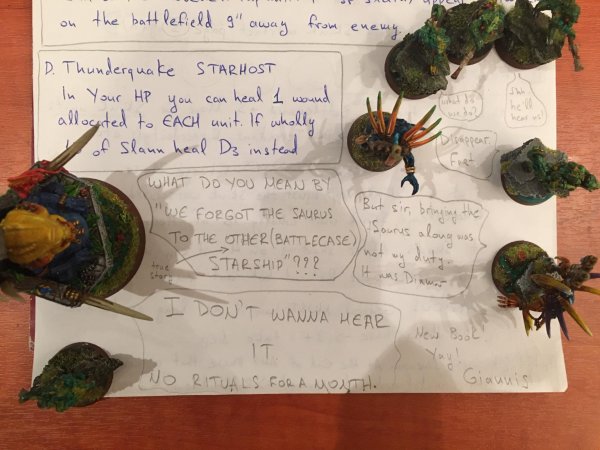 on the battlefield 9" away from enemy.
D. Thunderquake STARHOST
In Your HP you can heal 1 wound
allocated to EACH unit. If wholly
of Slann heal D3 instead
what do
we do?
shh
he'll
hear us!
Disappear.
Fast.
WHAT DO YOU MEAN BY
"WE FORGOT THE SAURUS
TO THE OTHER (BATTLECASE)
STARSHIP"???
true
story
But sir, bringing the
Saurus along was
not my duty.
It was Dimmo
I DON'T WANNA HEAR
IT
NO RITUALS FOR A MONTH.
New Book!
Yay!
Giannis